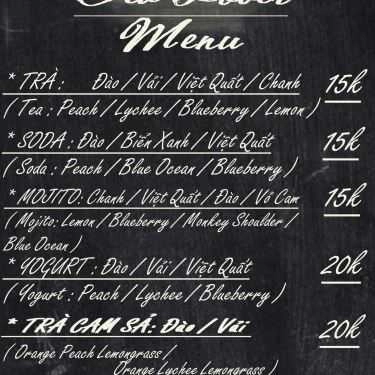 Menu
* TRÀ : Đào / Vải / Việt Quất / Chanh 15k
( Tea : Peach / Lychee / Blueberry / Lemon )
* SODA : Đào / Biển Xanh / Việt Quất 15k
( Soda : Peach / Blue Ocean / Blueberry )
* MOJITO: Chanh / Việt Quất / Đào / Vô Cam 15k
( Mojito: Lemon / Blueberry / Monkey Shoulder /
Blue Ocean )
* YOGURT : Đào / Vải / Việt Quất 20k
( Yogurt : Peach / Lychee / Blueberry )
* TRÀ CAM SẢ: Đào / Vải 20k
( Orange Peach Lemongrass /
Orange Lychee Lemongrass )